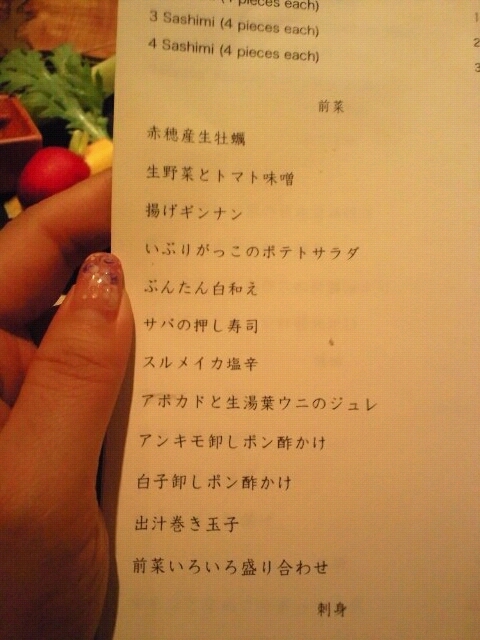 pieces each)
3 Sashimi (4 pieces each)
4 Sashimi (4 pieces each)
前菜
赤穂産生牡蠣
生野菜とトマト味噌
揚げギンナン
いぶりがっこのポテトサラダ
ぶんたん白和え
サバの押し寿司
スルメイカ塩辛
アボカドと生湯葉ウニのジュレ
アンキモ卸しポン酢かけ
白子卸しポン酢かけ
出汁巻き玉子
前菜いろいろ盛り合わせ
刺身